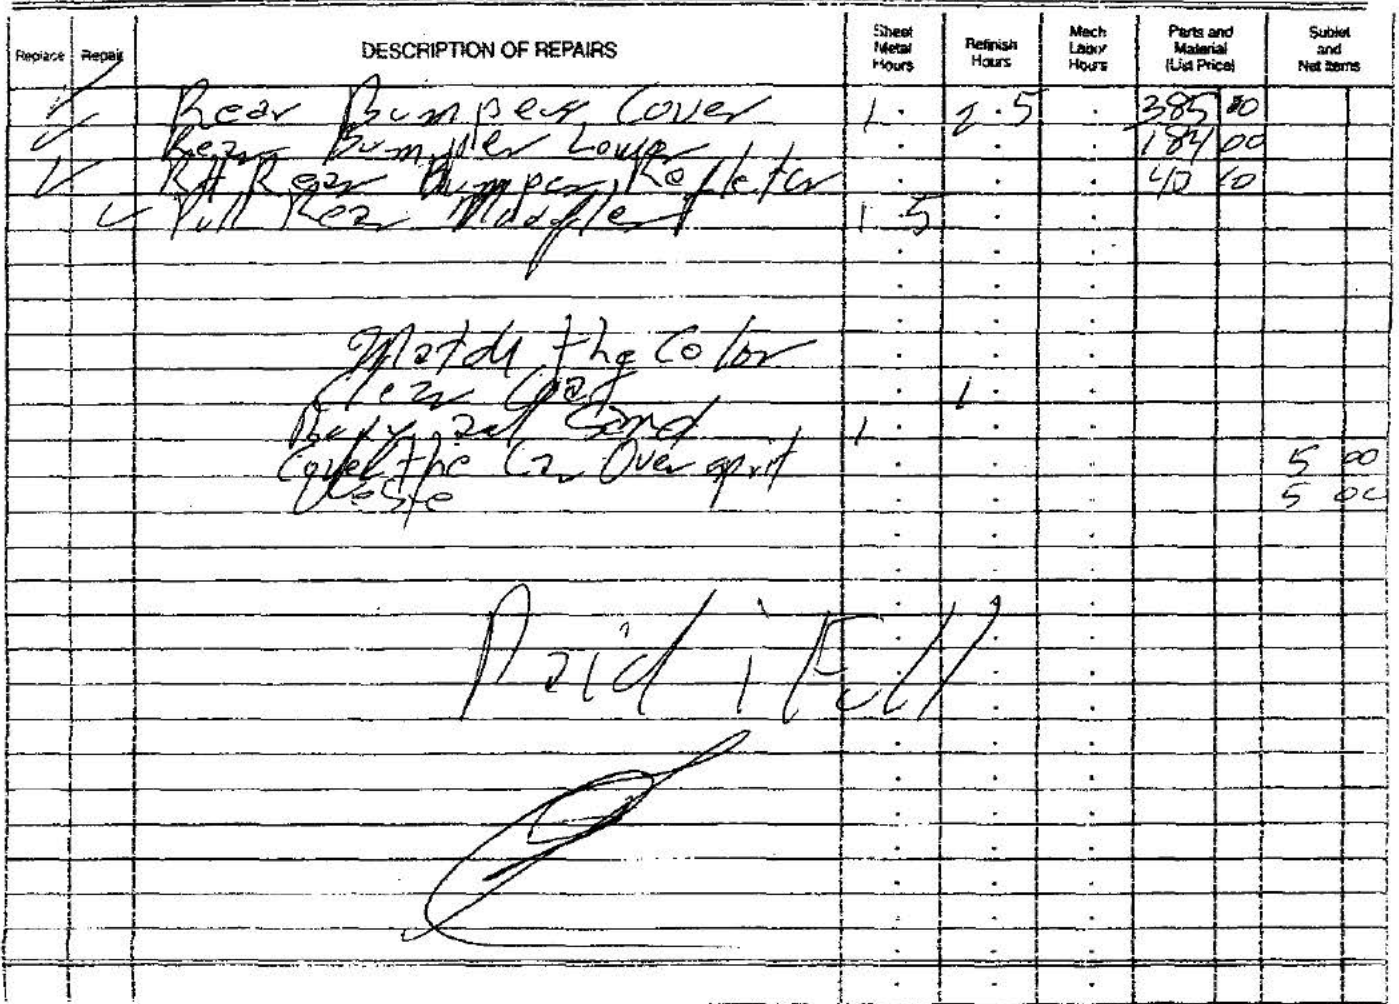 Replace Repair DESCRIPTION OF REPAIRS Sheet Metal Hours Refinish Hours Mech Labor Hours Parts and Material (List Price) Sublet and Net Items
Rear Bumper Cover 1. 2.5 385 00
Rear Bumper Lower 184 00
RH Rear Bumper Refletor 40
Pull Rear 1.5
Match the Color
Clear Coat 1.
and Sand 1.
Cover the Car Over 5 00
5 00
Paid i Full